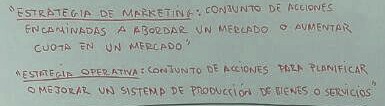 "ESTRATEGIA DE MARKETING: CONJUNTO DE ACCIONES
ENCAMINADAS A ABORDAR UN MERCADO O AUMENTAR
CUOTA EN UN MERCADO"
"ESTATEGIA OPERATIVA: CONJUNTO DE ACCIONES PARA PLANIFICAR
O MEJORAR UN SISTEMA DE PRODUCCIÓN DE BIENES O SERVICIOS"